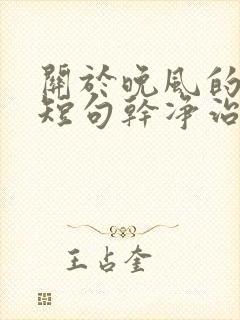 關於晚風的
短句幹凈治
王占奎